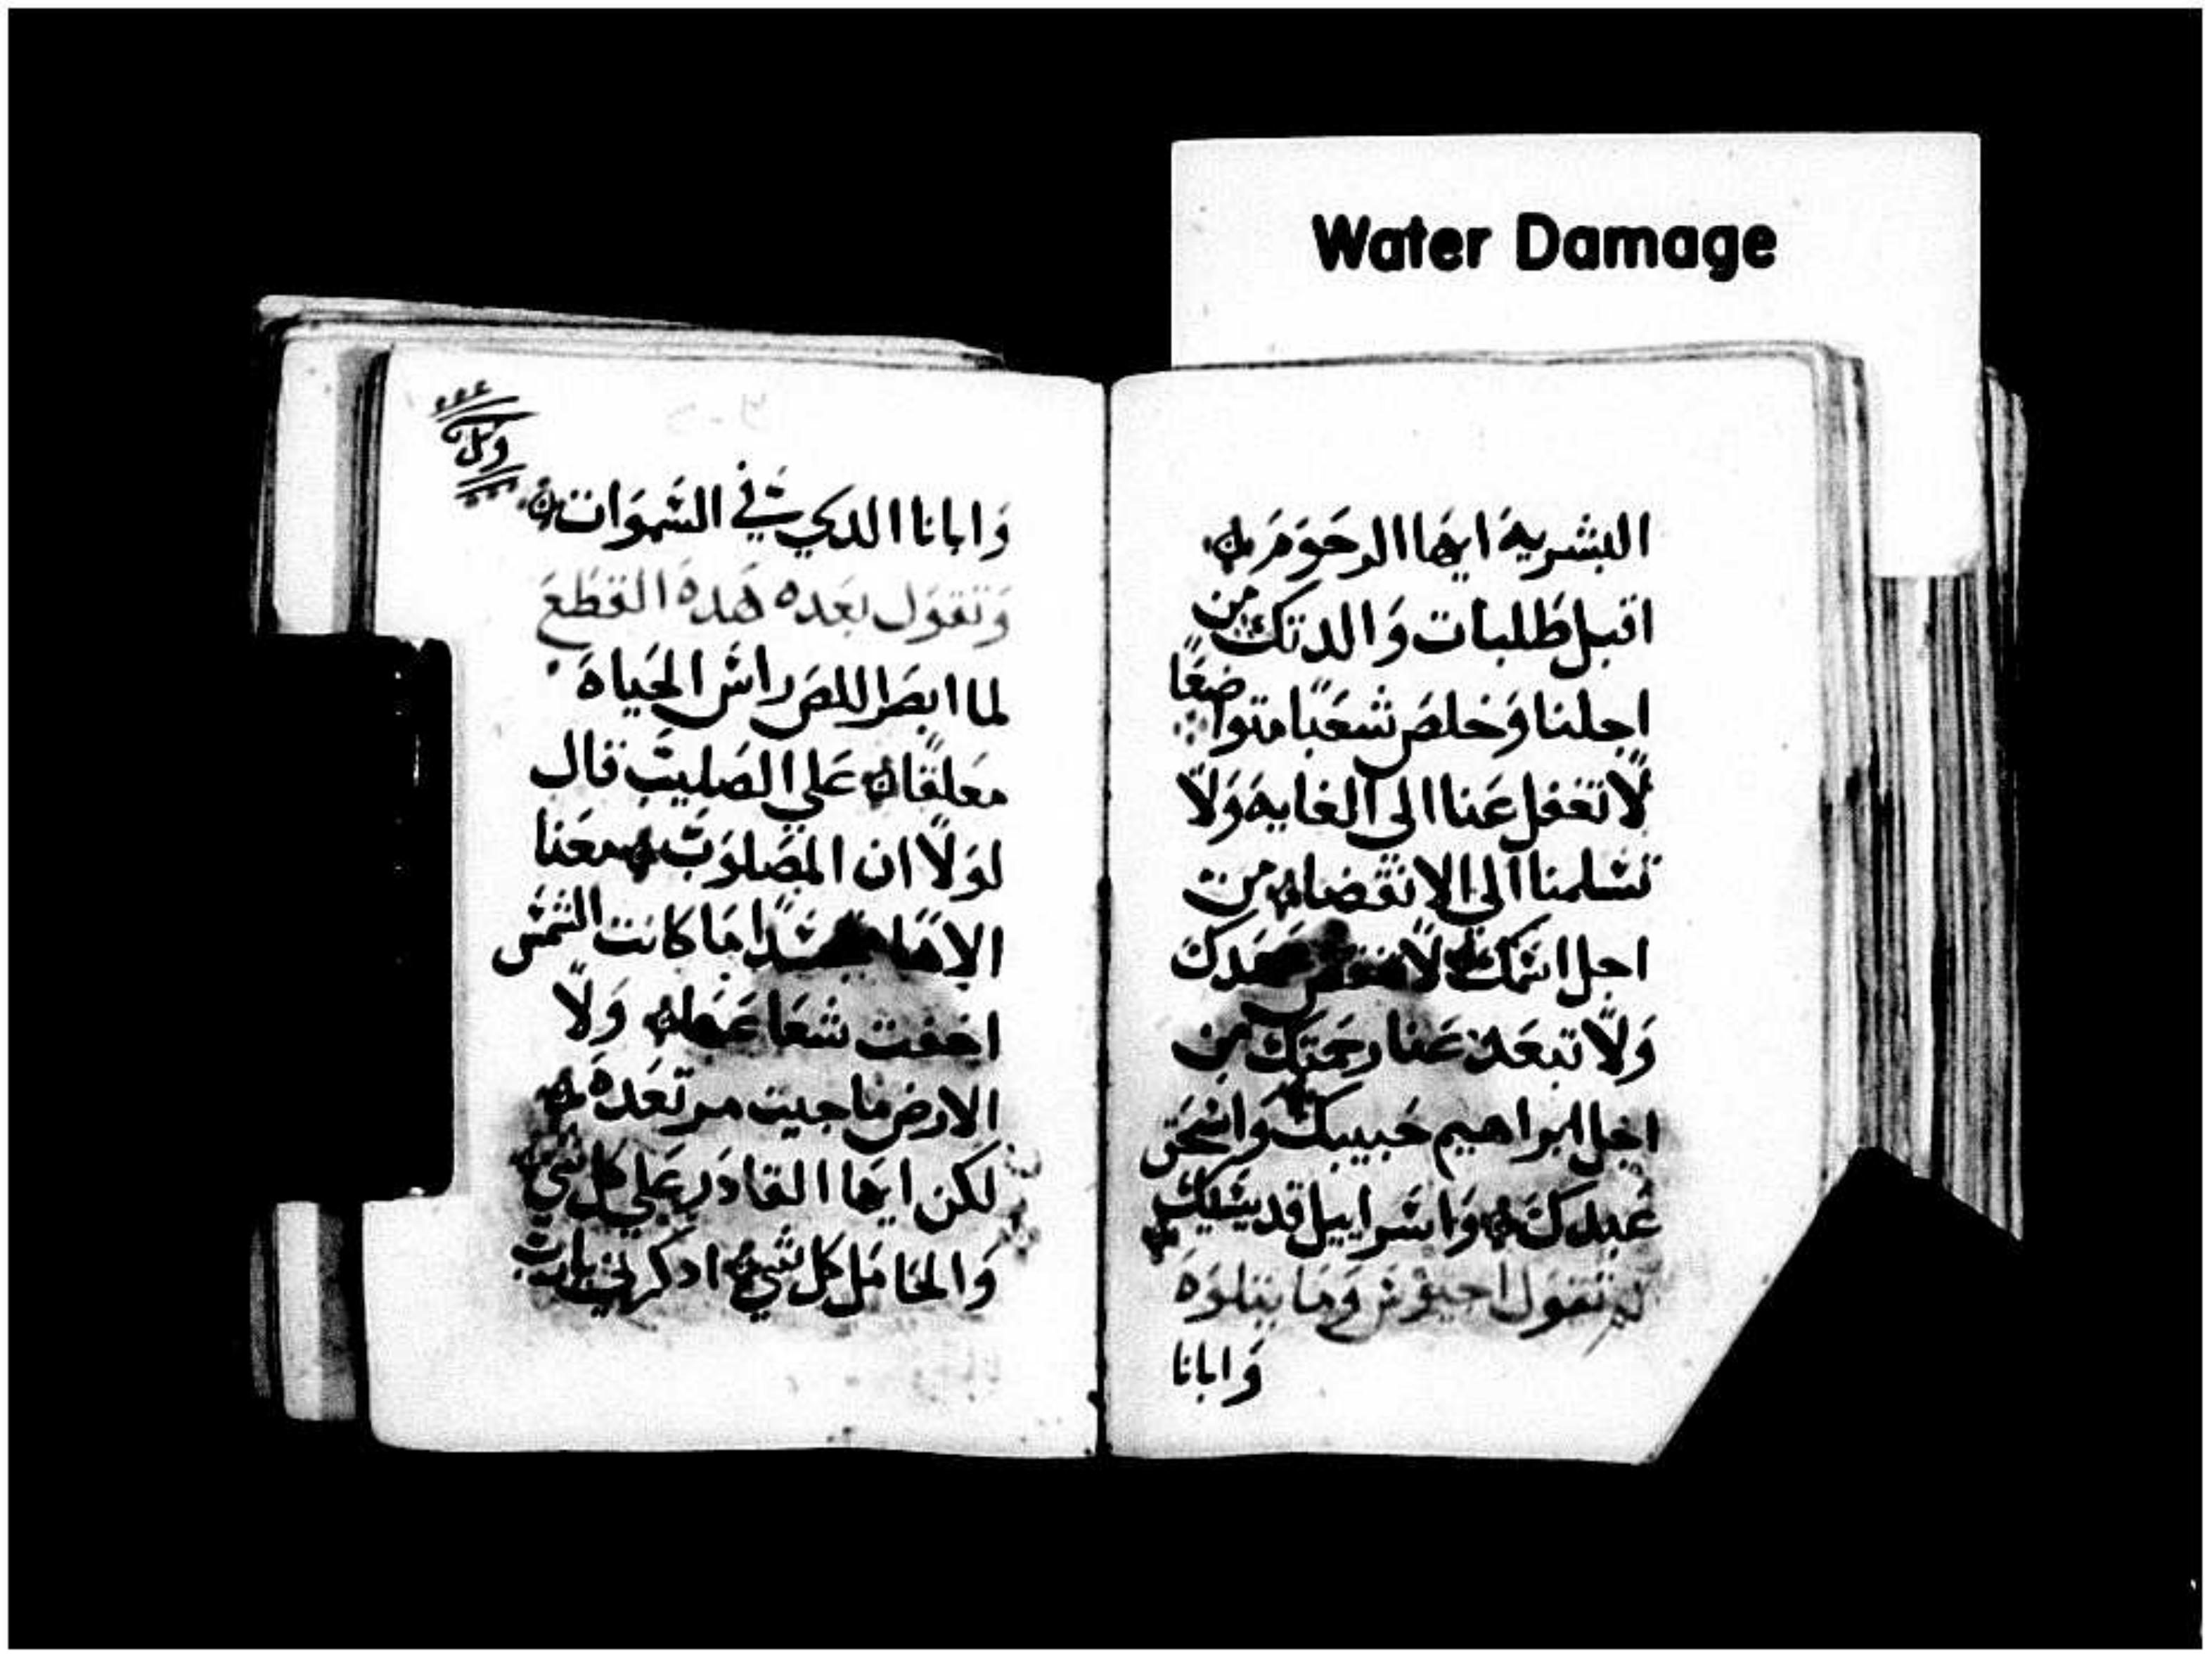 Water Damage
البشريه ايها الرحوم
اقبل طلبات والدتك من
اجلنا وخلص شعبًا متواضعًا
لا تغفل عنا الى الغايه ولا
تسلمنا الى الانقضا من
اجل اسمك لا تنقض عهدك
ولا تبعد عنا رحمتك من
اجل ابراهيم حبيبك واسحق
عبدك واسراييل قديسك
تقول اجيوس وما يتلوه
وابانا
وابانا الدي في السموات
وتقول بعده هده القطع
لما ابصر اللص راس الحياه
معلقا على الصليب قال
لولا ان المصلوب معنا
الاها ما كانت الشمس
اخفت شعاعها ولا
الارض ماجت مرتعده
لكن ايها القادر على كل شي
والحامل كل شي ادكرني يارب